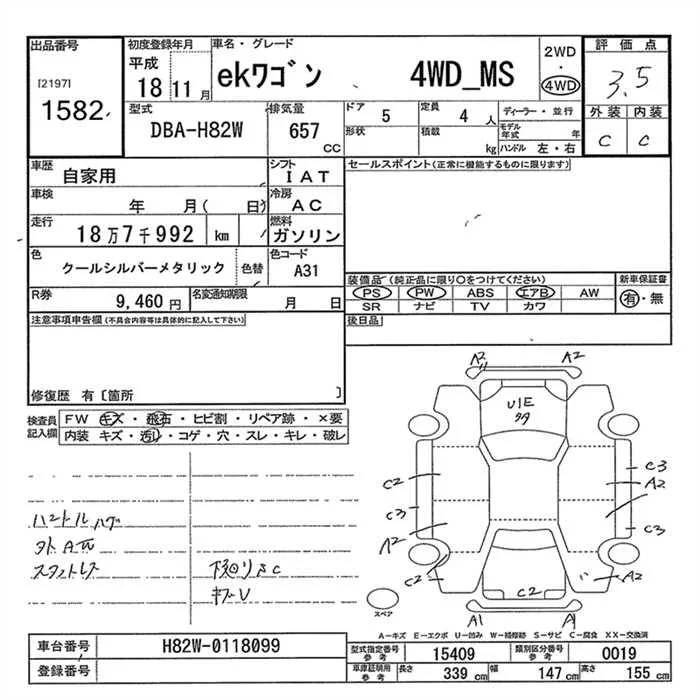 出品番号 初度登録年月 車名・グレード 2WD 評価点
[2197] 平成 ekワゴン 4WD_MS 4WD 3.5
1582 18 11月 外装 内装
型式 排気量 ドア 5 定員 4人 ディーラー・並行 C C
DBA-H82W 657 CC 形状 積載 kg モデル年式 年 ハンドル 左・右
車歴 自家用 シフト IAT セールスポイント(正常に機能するものに限ります)
車検 年 月( 日) 冷房 AC
走行 18万7千992 km 燃料 ガソリン
色 クールシルバーメタリック 色替 色コード A31
装備品(純正品に限り○をつけてください) 新車保証書
R券 9,460円 名変通知期限 月 日 PS PW ABS エアB AW 有・無
SR ナビ TV カワ
注意事項申告欄(不具合内容等は具体的に記入して下さい) 後日品
修復歴 有〔箇所 〕
検査員記入欄 FW キズ・飛石・ヒビ割・リペア跡・×要
内装 キズ・汚れ・コゲ・穴・スレ・キレ・破レ
A2 A2
U1E
C2 C3
A2
C3 C3
A2
C2 A2
C2
ハンドルハゲ
スタットレス 下回りSC
キズU
スペア
A1 A1
A−キズ E−エクボ U−凹み W−補修跡 S−サビ C−腐食 XX−交換済
車台番号 H82W-0118099 型式指定番号参考 15409 類別区分番号参考 0019
登録番号 車庫証明用参考 長さ 339 cm 幅 147 cm 高さ 155 cm